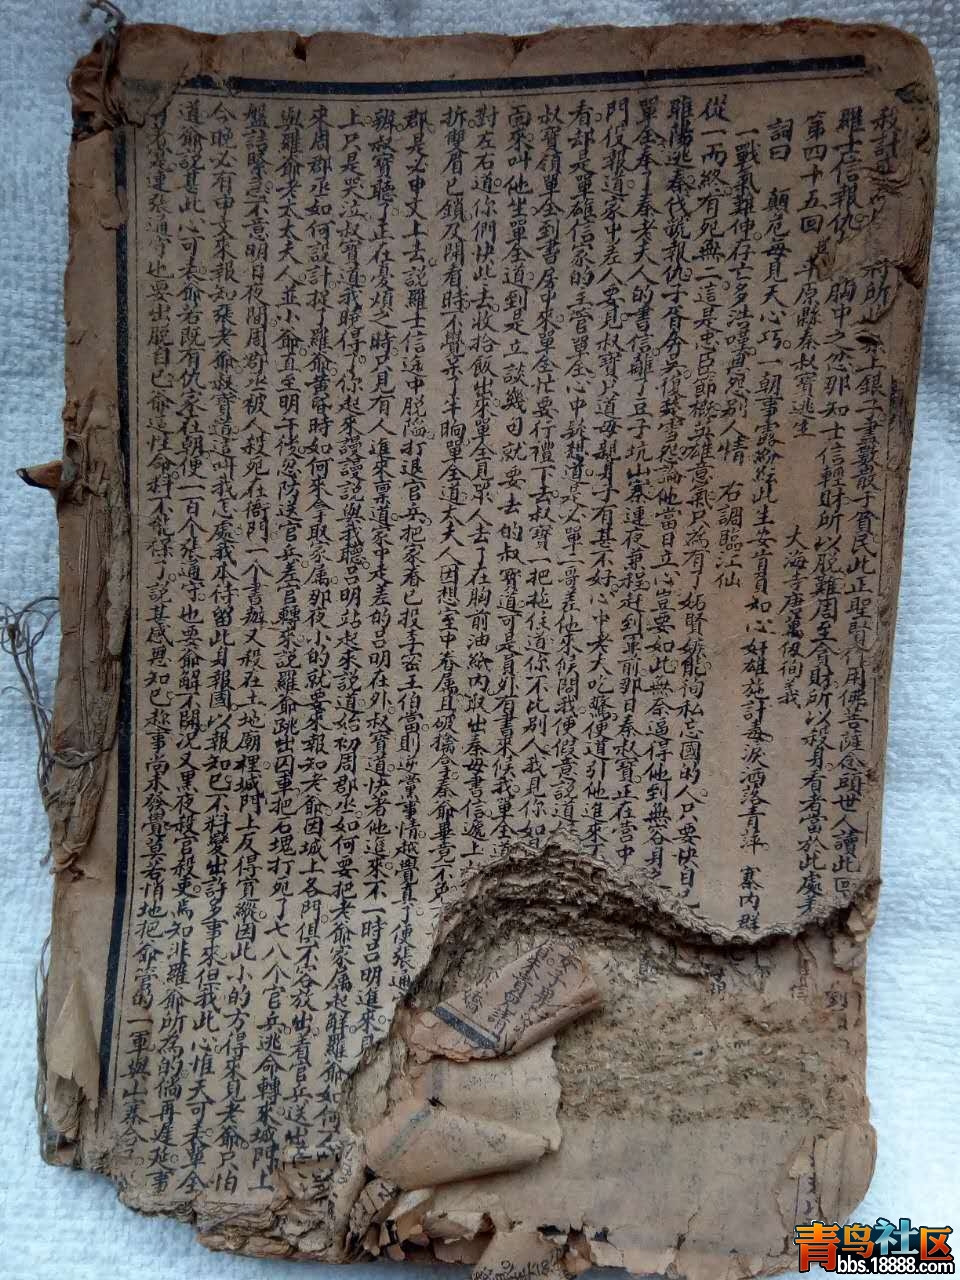 羅士信報仇 胸中之忿那知士信輕財所以脫難周至貪財所以殺身看者當於此處着
第四十五回 平原縣秦叔寶逃生 大海寺唐萬仞徇義
詞曰 顛危每見天心巧。一朝事露紛紜此生安肯負如心奸雄施計毒淚洒落青萍 寨內群
一戰氣難伸存亡多浩嘆冤別人情 右調臨江仙
從一而終。有死無二。這是忠臣節概英雄意氣只為有了妬賢嫉能徇私忘國的人只要快自己
睢陽逃秦代說報仇子胥奔吳復楚雪怨論他當日立心豈要如此無奈逼得他到無容身之
單全奉了秦老夫人的書信離了豆子坑山寨連夜兼程赶到軍前那日秦叔寶正在營中
門役報道家中差人要見叔寶只道母親身子有甚不好心中老大吃驚便道引他進來
看却是單雄信家的主管單全心中疑想道是必單二哥差他來候問我便假意說道
叔寶領單全到書房中來單全忙要行禮下去叔寶一把拖住道你不比別人我見你如
面來叫他坐單全道到是立談幾句就要去的叔寶道可是員外有書來候我單全道
對左右道你們快些去收拾飯出來單全見眾人去了在胸前油紙內取出秦母書信遞上
拆雙眉已鎖及開看時不覺呆了半晌單全道太夫人因想至中眷屬且破擒全秦爺畢竟不免
郡是必申文上去說羅士信途中脫陷打退官兵把家眷已投李密王伯當則逆黨事情越覺真了便張通
辦叔寶聽了正在憂煩少時只見有人進來稟道家中走差的呂明在外叔寶道快着他進來不一時呂明進來見
上只是哭泣叔寶道我曉得了你起來謾謾說與我聽呂明站起來說道始初周郡丞如何要把老爺家屬起解羅爺如何
來周郡丞如何設計捉了羅爺黃昏時如何來拿取家屬那夜小的就要來報知老爺因城上各門俱不容放出看官兵送出
與羅爺老太太夫人並小爺直至明午後忽防送官兵差官轉來說羅爺跳出囚車把石塊打死了七八個官兵逃命轉來城門上
盤詰緊急不意明日夜間周郡丞被人殺死在衙門一個書辦又殺在土地廟裡城門上反得寬縱因此小的方得來見老爺只怕
今晚必有申文來報知張老爺叔寶道這叫我怎處我本待留此身報國以報知己不料變出許多事來但我此心惟天可表單全
道爺說甚此心可表爺若既有仇家在朝便一百個張通守也與爺解不開況又黑夜殺官殺吏焉知非羅爺所為的倘再遲延事
有着忙連張通守也要出脫自己爺這性命料不能保了說甚感恩知己趁事尚未發覺莫若悄地把爺管的一軍與山寨合
青鸟社区
bbs.18888.com